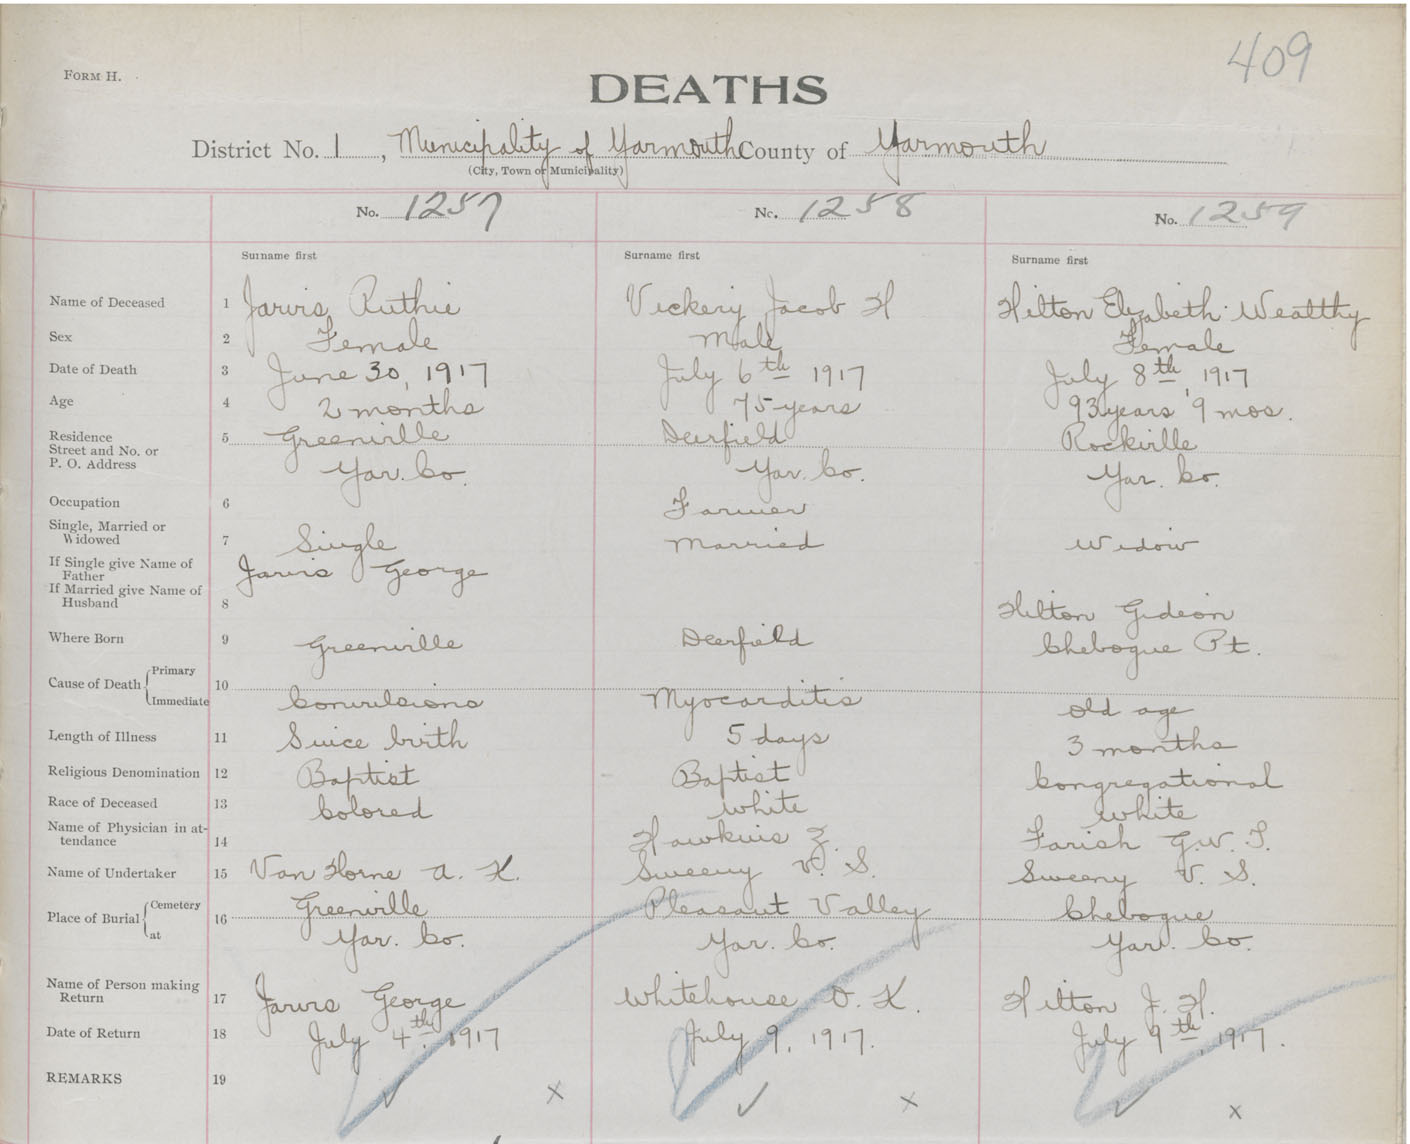 409
FORM H.
DEATHS
District No. 1, Municipality of Yarmouth County of Yarmouth
(City, Town or Municipality)
No. 1257 No. 1258 No. 1259
Surname first Surname first Surname first
Name of Deceased 1 Jarvis Ruthie Vickery Jacob H Hilton Elizabeth Wealthy
Sex 2 Female Male Female
Date of Death 3 June 30, 1917 July 6th 1917 July 8th, 1917
Age 4 2 months 75 years 93 years 9 mos.
Residence 5 Greenville Deerfield Rockville
Street and No. or
P. O. Address Yar. Co. Yar. Co. Yar. Co.
Occupation 6 Farmer
Single, Married or
Widowed 7 Single Married Widow
If Single give Name of
Father Jarvis George
If Married give Name of
Husband 8 Hilton Gideon
Where Born 9 Greenville Deerfield Chebogue Pt.
Cause of Death Primary
10
Immediate Convulsions Myocarditis old age
Length of Illness 11 Since birth 5 days 3 months
Religious Denomination 12 Baptist Baptist Congregational
Race of Deceased 13 Colored White White
Name of Physician in at-
tendance 14 Hawkins Z. Farish G.W.T.
Name of Undertaker 15 Van Horne A. K. Sweeny V. S. Sweeny V. S.
Place of Burial Cemetery 16 Greenville Pleasant Valley Chebogue
at Yar. Co. Yar. Co. Yar. Co.
Name of Person making
Return 17 Jarvis George Whitehouse O. K. Hilton J. H.
Date of Return 18 July 4th, 1917 July 9, 1917. July 9th, 1917.
REMARKS 19
✓ x ✓ x ✓ x